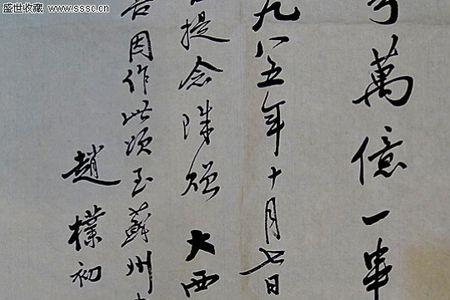 盛世收藏 www.sssc.cn
萬億一畢
九八五年十月七日
提念珠 大西
因作此頌 蘇州
趙樸初